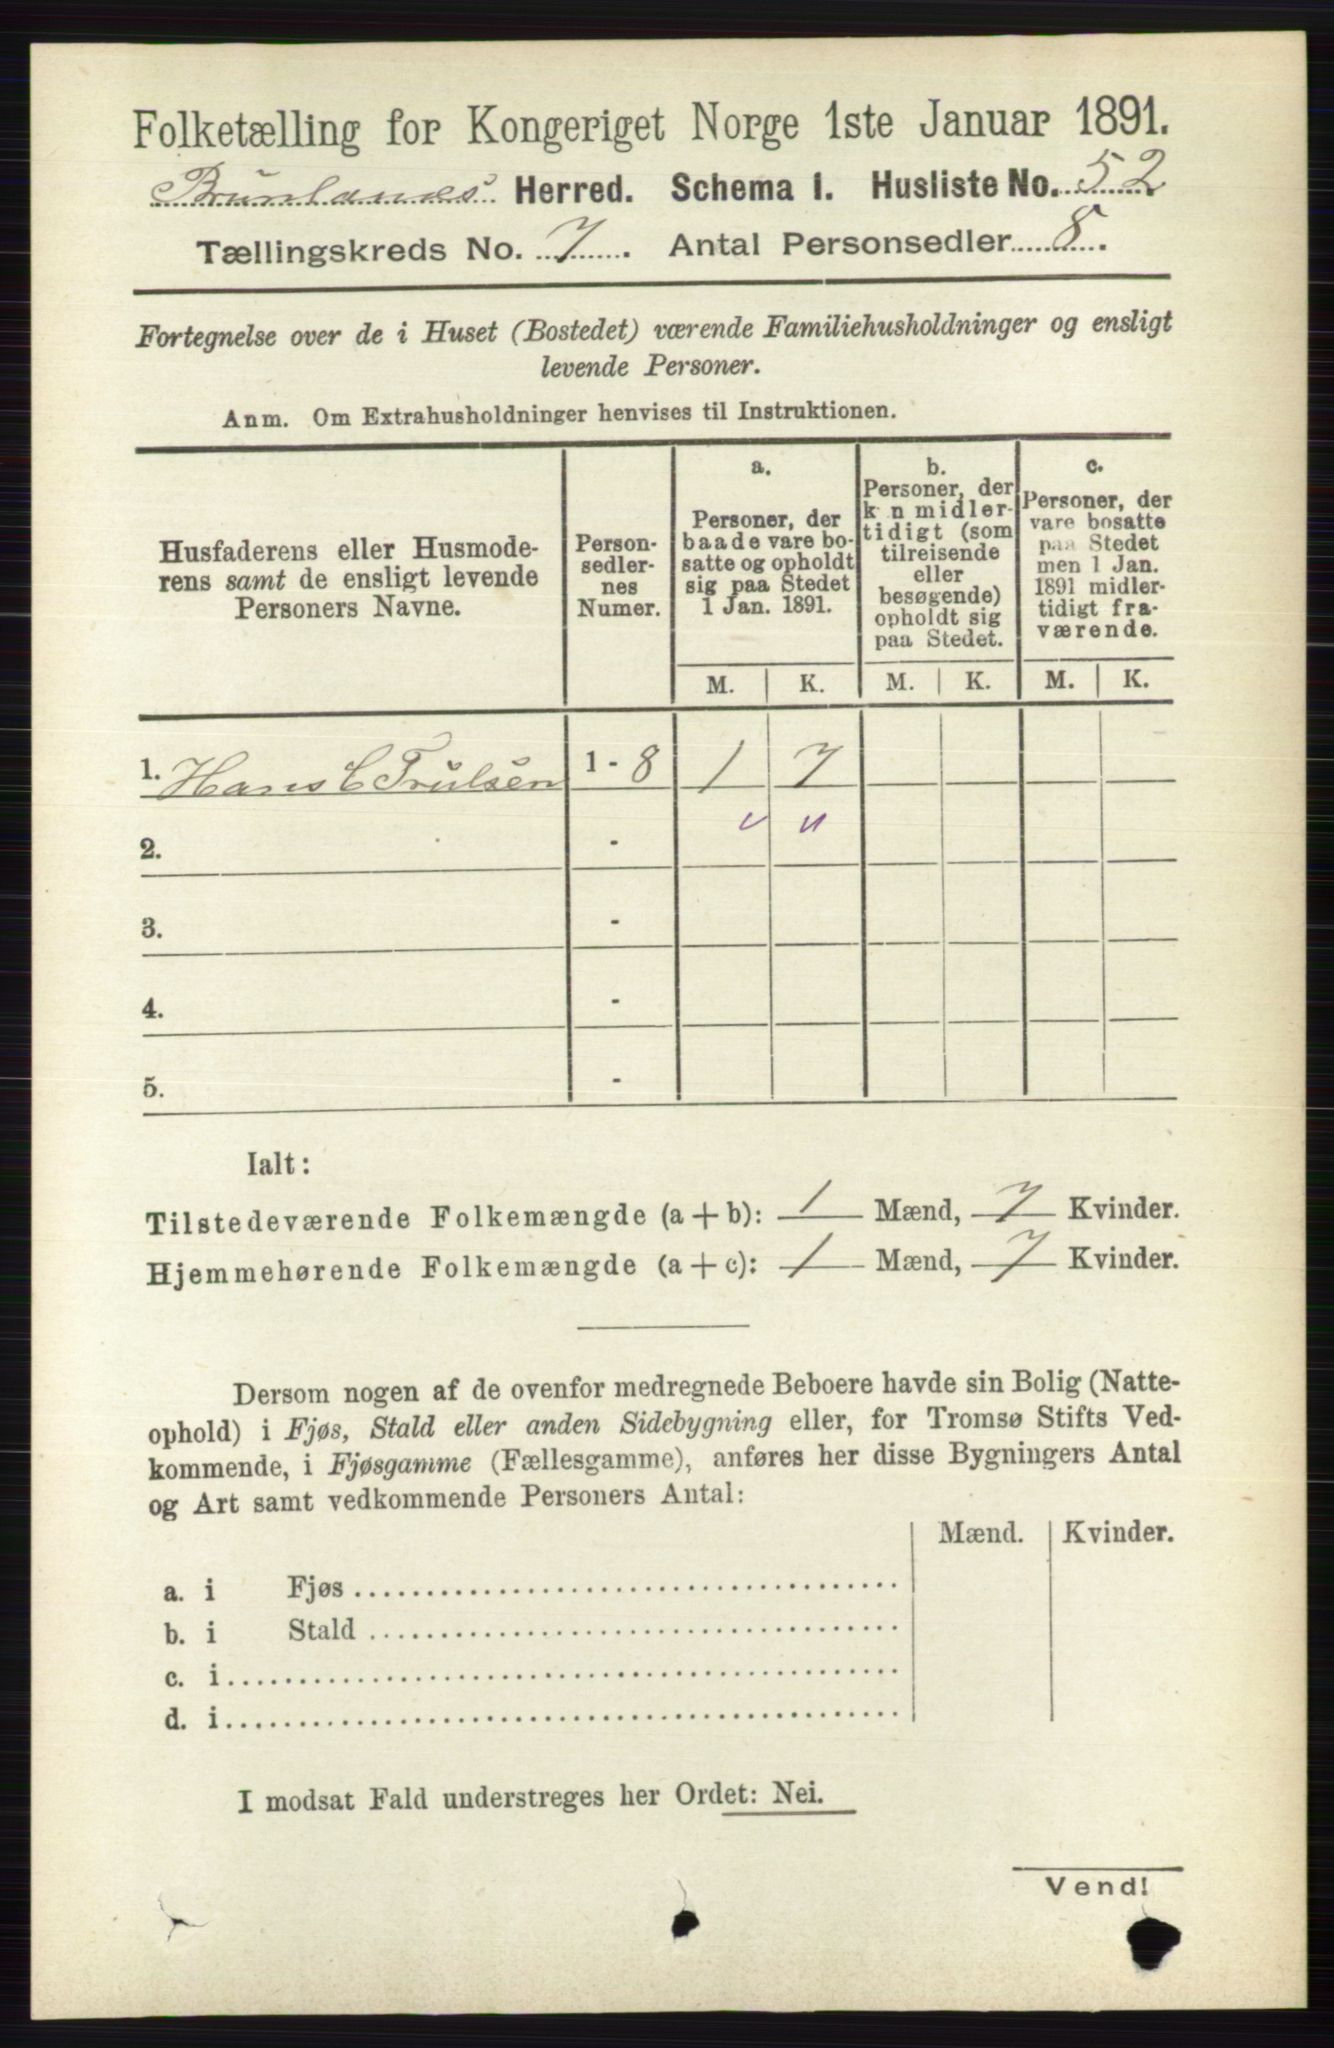 Folketælling for Kongeriget Norge 1ste Januar 1891.
Brunlanes Herred. Schema 1. Husliste No. 52
Tællingskreds No. 7. Antal Personsedler 8.
Fortegnelse over de i Huset (Bostedet) værende Familiehusholdninger og ensligt
levende Personer.
Anm. Om Extrahusholdninger henvises til Instruktionen.
Husfaderens eller Husmode-
rens samt de ensligt levende
Personers Navne.
Person-
sedler-
nes
Numer.
a.
Personer, der
baade vare bo-
satte og opholdt
sig paa Stedet
1 Jan. 1891.
b.
Personer, der
k n midler-
tidigt (som
tilreisende
eller
besøgende)
opholdt sig
paa Stedet.
c.
Personer, der
vare bosatte
paa Stedet
men 1 Jan.
1891 midler-
tidigt fra-
værende.
M. K. M. K. M. K.
1. Hans C Trulsen 1 - 8 1 7
2. -
3. -
4. -
5. -
Ialt:
Tilstedeværende Folkemængde (a + b): 1 Mænd, 7 Kvinder.
Hjemmehørende Folkemængde (a + c): 1 Mænd, 7 Kvinder.
Dersom nogen af de ovenfor medregnede Beboere havde sin Bolig (Natte-
ophold) i Fjøs, Stald eller anden Sidebygning eller, for Tromsø Stifts Ved-
kommende, i Fjøsgamme (Fællesgamme), anføres her disse Bygningers Antal
og Art samt vedkommende Personers Antal:
Mænd. Kvinder.
a. i Fjøs
b. i Stald
c. i
d. i
I modsat Fald understreges her Ordet: Nei.
Vend!